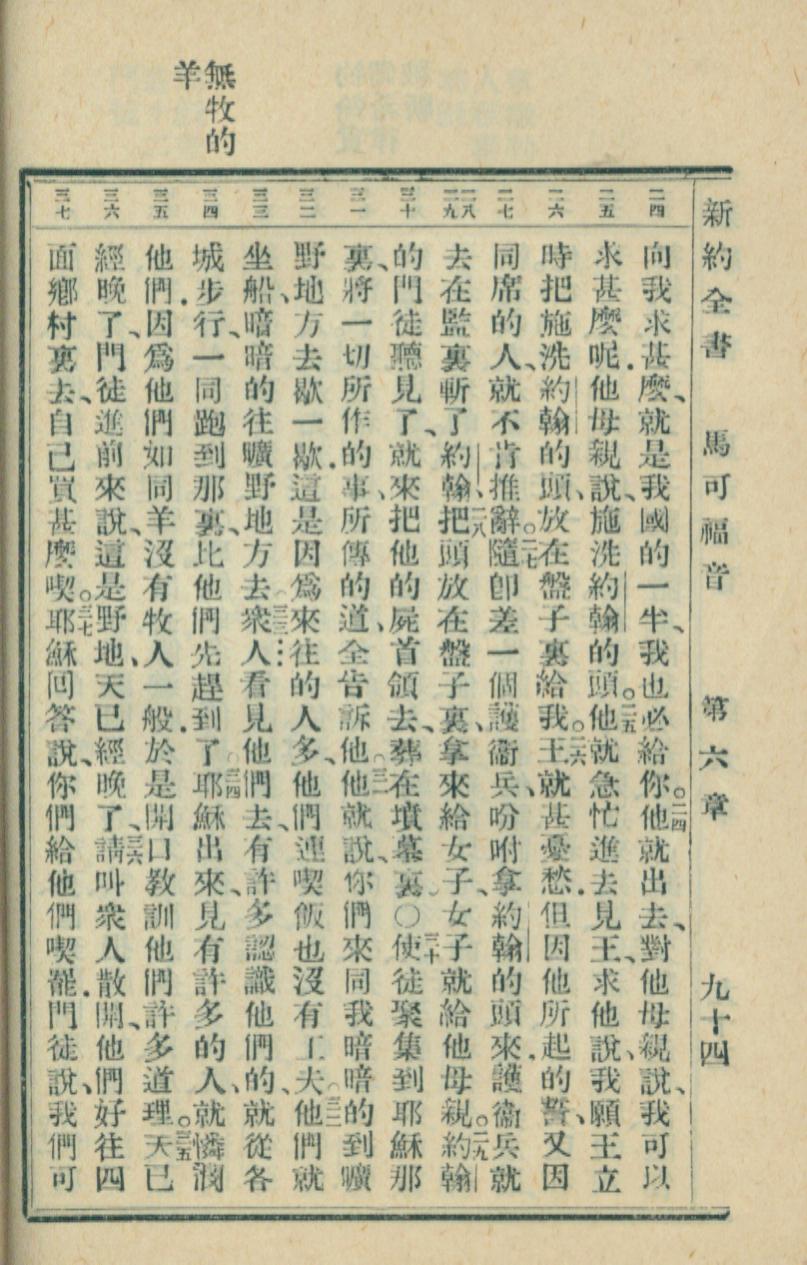 新約全書 馬可福音 第六章 九十四
無牧的
羊
二四 二五 二六 二七 二八 二九 三十 三一 三二 三三 三四 三五 三六 三七
向我求甚麼、就是我國的一半、我也必給你。二四他就出去、對他母親說、我可以
求甚麼呢.他母親說、施洗約翰的頭。二五他就急忙進去見王、求他說、我願王立
時把施洗約翰的頭、放在盤子裏給我。二六王就甚憂愁.但因他所起的誓、又因
同席的人、就不肯推辭。二七隨卽差一個護衞兵、吩咐拿約翰的頭來.護衞兵就
去在監裏斬了約翰、二八把頭放在盤子裏、拿來給女子、女子就給他母親。二九約翰
的門徒聽見了、就來把他的屍首領去、葬在墳墓裏。〇三十使徒聚集到耶穌那
裏、將一切所作的事、所傳的道、全告訴他。三一他就說、你們來同我暗暗的到曠
野地方去歇一歇.這是因爲來往的人多、他們連喫飯也沒有工夫。三二他們就
坐船、暗暗的往曠野地方去。三三衆人看見他們去、有許多認識他們的、就從各
城步行、一同跑到那裏、比他們先趕到了。三四耶穌出來、見有許多的人、就憐憫
他們.因爲他們如同羊沒有牧人一般.於是開口敎訓他們許多道理。三五天已
經晚了、門徒進前來說、這是野地、天已經晚了、三六請叫衆人散開、他們好往四
面鄉村裏去、自己買甚麼喫。三七耶穌回答說、你們給他們喫罷.門徒說、我們可